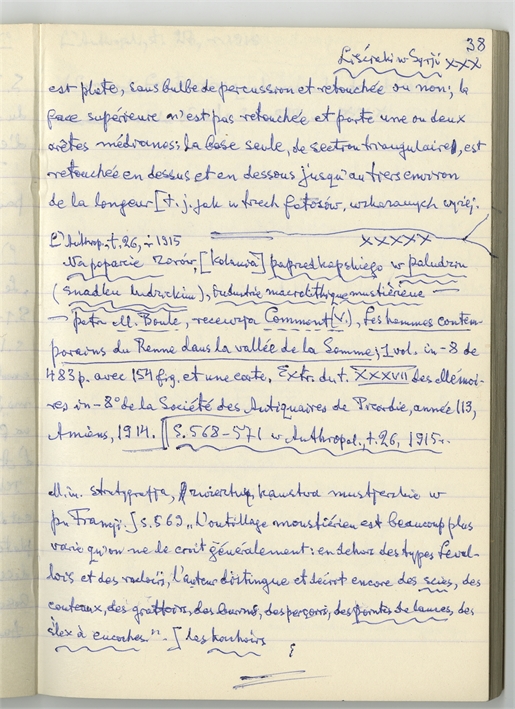 38
w Syrji XXX
est plate, sans bulbe de percussion et retouchée ou non; la
face supérieure n'est pas retouchée et porte une ou deux
arêtes médianes; la base seule, de section triangulaire, est
retouchée en dessus et en dessous jusqu'au tiers environ
de la longeur [t.j. jak w trzech fotosów, wskazanych wyżej.
L'Anthrop. t. 26, 1915
XXXXX
Na poparcie w paludzin
(spadku ludzkim), industrie macrolithique moustiérienne
patrz M. Boule, recenzja Comment (V.), Les hommes contem-
porains du Renne dans la vallée de la Somme; 1 vol. in-8 de
483 p. avec 154 fig. et une carte, Extr. du t. XXXVII des Mémoi-
res in-8° de la Société des Antiquaires de Picardie, année 113,
Amiens, 1914. [S. 568-571 w Anthropol., t. 26, 1915 r.
M. in. stratygrafja, w
pn Francji. [s. 569 „L'outillage moustiérien est beaucoup plus
varié qu'on ne le croit généralement: en dehors des types Leval-
lois et des racloirs, l'auteur distingue et décrit encore des scies, des
couteaux, des grattoirs, des burins, des perçoirs, des pointes de lances, des
silex à encoches". ] des